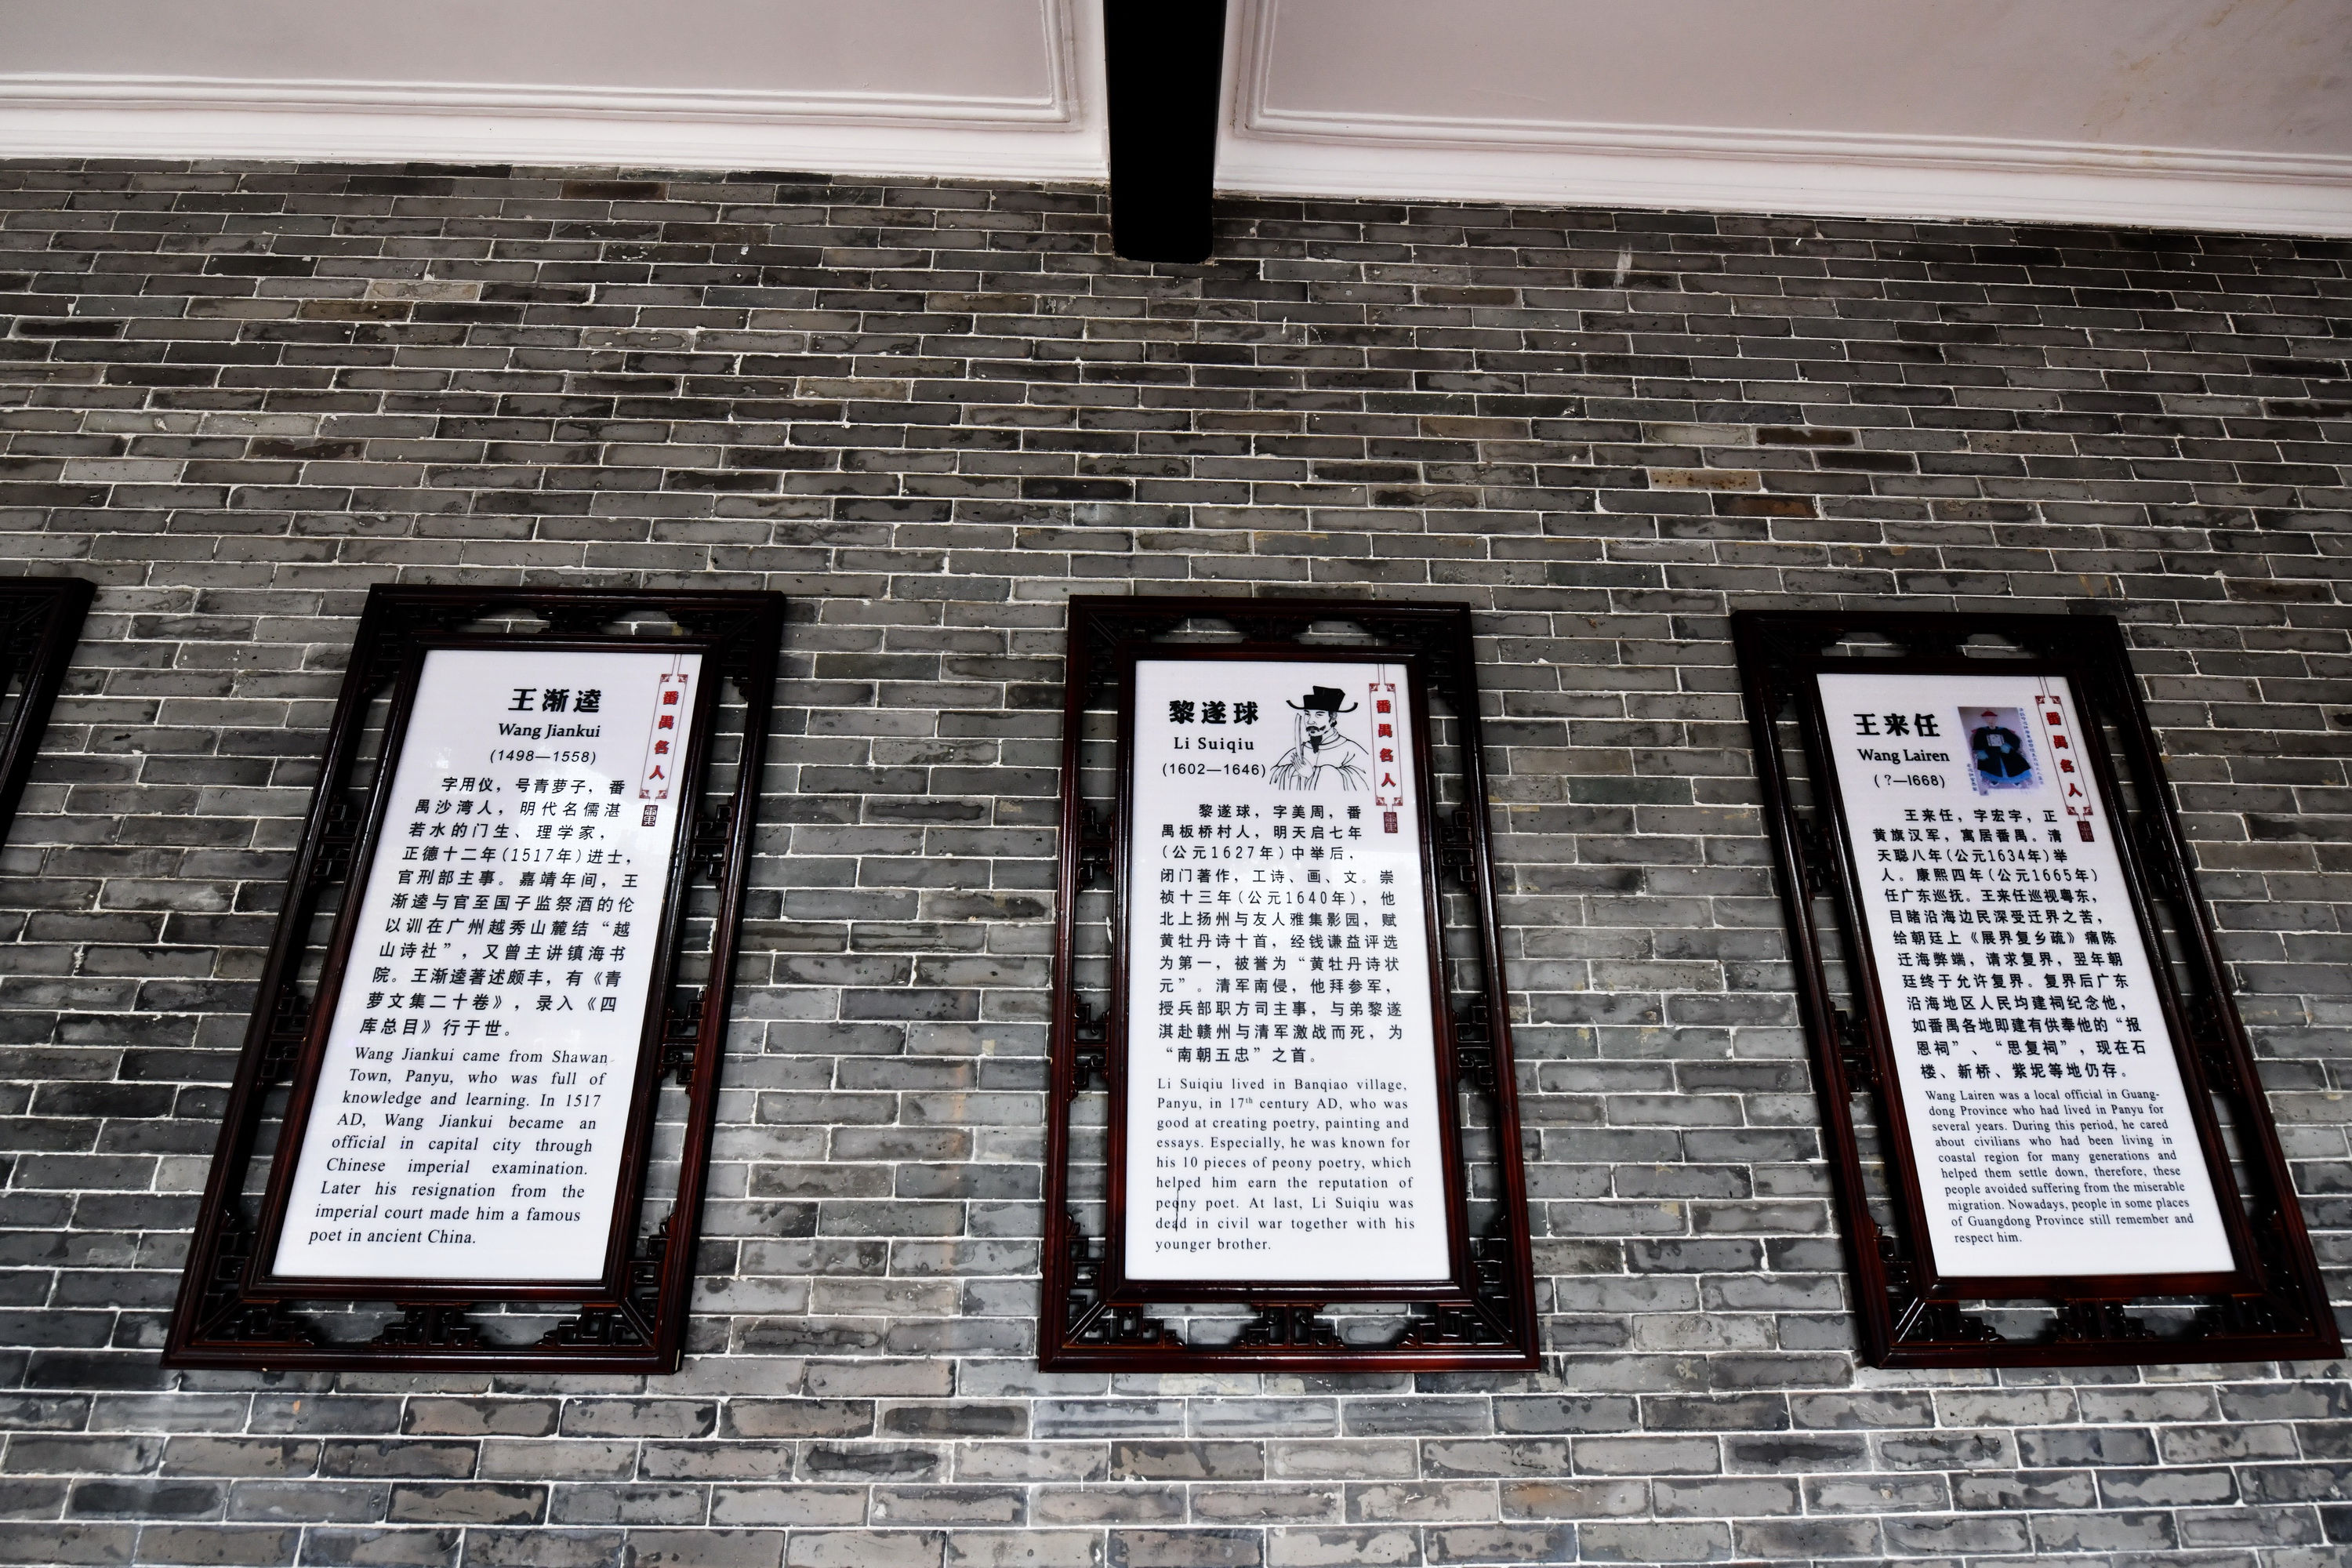 王渐逵
Wang Jiankui
(1498—1558)
字用仪，号青萝子，番
禺沙湾人，明代名儒湛
若水的门生、理学家，
正德十二年(1517年)进士，
官刑部主事。嘉靖年间，王
渐逵与官至国子监祭酒的伦
以训在广州越秀山麓结“越
山诗社”，又曾主讲镇海书
院。王渐逵著述颇丰，有《青
萝文集二十卷》，录入《四
库总目》行于世。
Wang Jiankui came from Shawan
Town, Panyu, who was full of
knowledge and learning. In 1517
AD, Wang Jiankui became an
official in capital city through
Chinese imperial examination.
Later his resignation from the
imperial court made him a famous
poet in ancient China.
番禺名人
黎遂球
Li Suiqiu
(1602—1646)
黎遂球，字美周，番
禺板桥村人，明天启七年
(公元1627年)中举后，
闭门著作，工诗、画、文。崇
祯十三年(公元1640年)，他
北上扬州与友人雅集影园，赋
黄牡丹诗十首，经钱谦益评选
为第一，被誉为“黄牡丹诗状
元”。清军南侵，他拜参军，
授兵部职方司主事，与弟黎遂
淇赴赣州与清军激战而死，为
“南朝五忠”之首。
Li Suiqiu lived in Banqiao village,
Panyu, in 17th century AD, who was
good at creating poetry, painting and
essays. Especially, he was known for
his 10 pieces of peony poetry, which
helped him earn the reputation of
peony poet. At last, Li Suiqiu was
dead in civil war together with his
younger brother.
番禺名人
王来任
Wang Lairen
(?—1668)
王来任，字宏宇，正
黄旗汉军，寓居番禺。清
天聪八年(公元1634年)举
人。康熙四年(公元1665年)
任广东巡抚。王来任巡视粤东，
目睹沿海边民深受迁界之苦，
给朝廷上《展界复乡疏》痛陈
迁海弊端，请求复界，翌年朝
廷终于允许复界。复界后广东
沿海地区人民均建祠纪念他，
如番禺各地即建有供奉他的“报
恩祠”、“思复祠”，现在石
楼、新桥、紫坭等地仍存。
Wang Lairen was a local official in Guang-
dong Province who had lived in Panyu for
several years. During this period, he cared
about civilians who had been living in
coastal region for many generations and
helped them settle down, therefore, these
people avoided suffering from the miserable
migration. Nowadays, people in some places
of Guangdong Province still remember and
respect him.
番禺名人